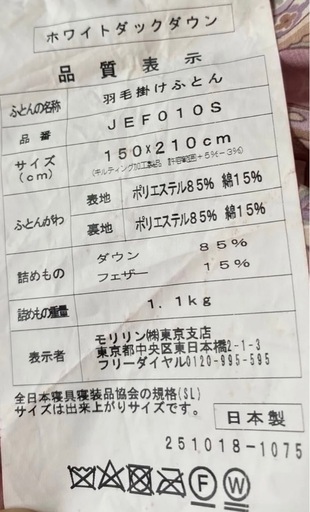 ホワイトダックダウン
品質表示
ふとんの名称 羽毛掛けふとん
品番 JEF010S
サイズ(cm) 150×210cm
(キルティング加工製品 許容範囲+5%-3%)
ふとんがわ 表地 ポリエステル85% 綿15%
裏地 ポリエステル85% 綿15%
詰めもの ダウン 85%
フェザー 15%
詰めもの重量 1.1kg
表示者 モリリン㈱東京支店
東京都中央区東日本橋2-1-3
フリーダイヤル0120-995-595
全日本寝具寝装品協会の規格(SL)
サイズは出来上がりサイズです。
日本製
251018-1075
F W